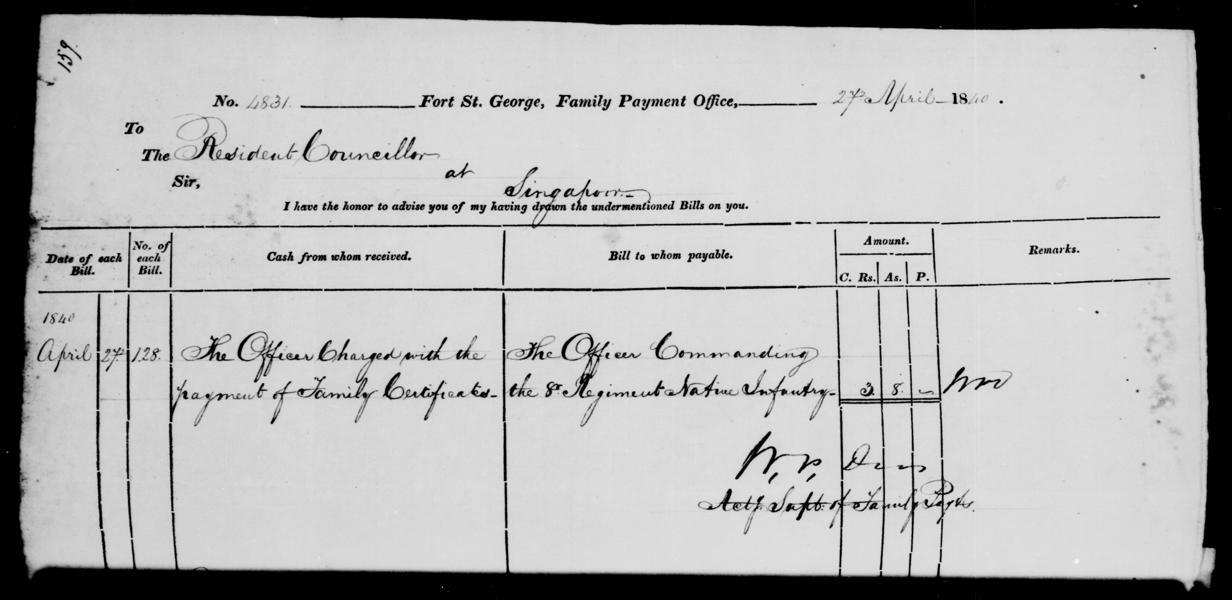 159.
No. 4831. Fort St. George, Family Payment Office, 27th April 1840.
To
The Resident Councillor
at
Sir, Singapoor
I have the honor to advise you of my having drawn the undermentioned Bills on you.
Date of each Bill. No. of each Bill. Cash from whom received. Bill to whom payable. Amount. Remarks.
C. Rs. As. P.
1840
April 27 128. The Officer Charged with the The Officer Commanding
payment of Family Certificates the 8th Regiment Native Infantry 3 8 -
W. P.
Actg. Supt. of Family Paymts.